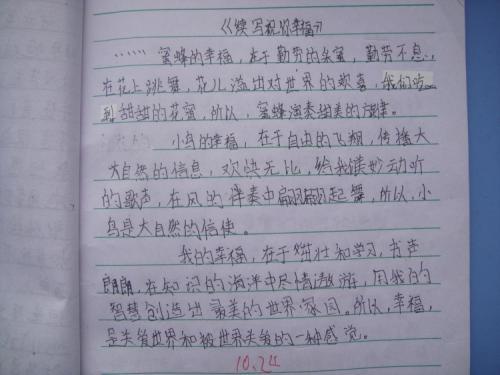 《续写祝你幸福》
……蜜蜂的幸福，在于勤劳的采蜜，勤劳不息，
在花上跳舞，花儿溢出对世界的欢喜，我们吃
到甜甜的花蜜，所以，蜜蜂演奏甜美的旋律。
小鸟的幸福，在于自由的飞翔，传播大
大自然的信息，欢快无比，给我们美妙动听
的歌声，在风的伴奏中翩翩起舞，所以，小
鸟是大自然的信使。
我的幸福，在于 和学习，书声
朗朗，在知识的海洋中尽情遨游，用我的
智慧创造出最美的世界家园。所以，幸福，
是关爱世界和被世界关爱的一种感觉。
10.24